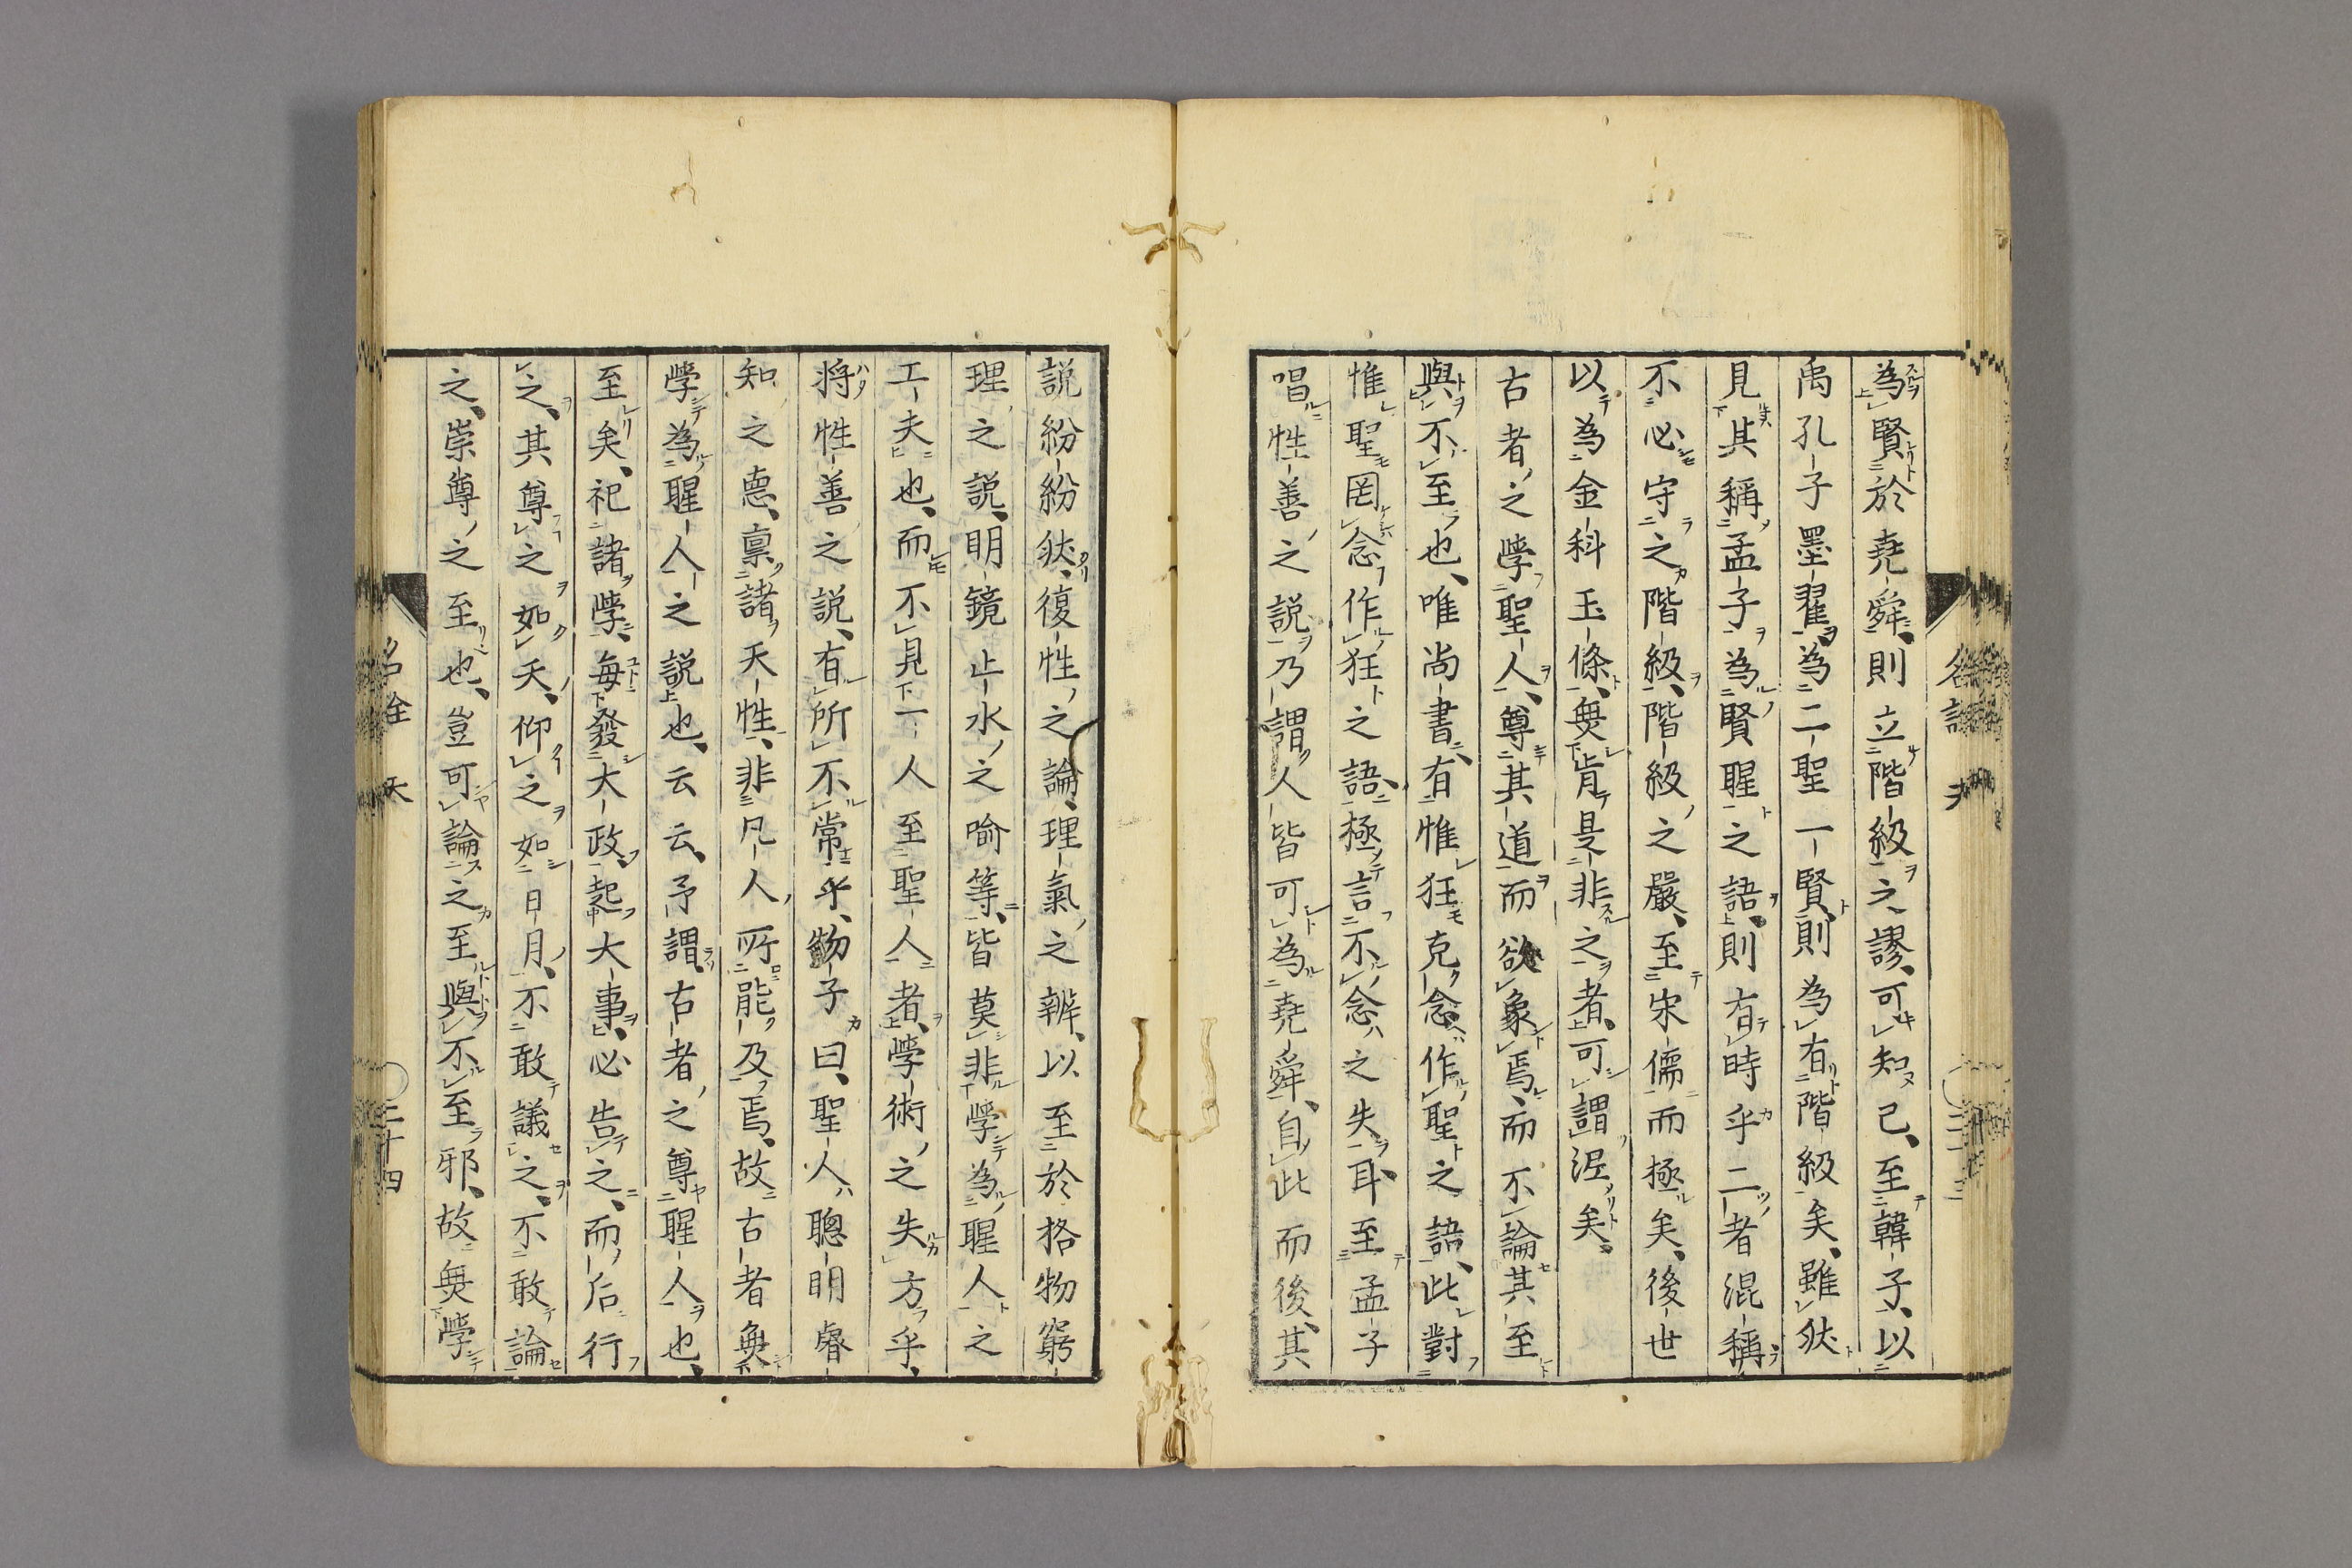 為賢於堯舜、則立階級之謬、可知已、至韓子、以
禹孔子墨翟為二聖一賢、則為有階級矣、雖然
見其稱孟子為賢聖之語、則有時乎二者混稱
不必守之階級、階級之嚴、至宋儒而極矣、後世
以為金科玉條、無肯是非之者、可謂泥矣、
古者之學聖人、尊其道而欲象焉、而不論其至
與不至也、唯尚書、有惟狂克念作聖之語、此對
惟聖罔念作狂之語、極言不念之失耳、至孟子
唱性善之說乃謂人皆可為堯舜、自此而後、其
說紛紛然、復性之論、理氣之辨、以至於格物窮
理之說、明鏡止水之喻等、皆莫非學為聖人之
工夫也、而不見一人至聖人者、學術之失方乎、
將性善之說、有所不常乎、物子曰、聖人聰明睿
知之德、稟諸天性、非凡人所能及焉、故古者無
學為聖人之說也、云云、予謂、古者之尊聖人也、
至矣、祀諸學、每發大政、起大事、必告之、而后行
之、其尊之如天、仰之如日月、不敢議之、不敢論
之、崇尊之至也、豈可論之至與不至邪、故無學
二十四